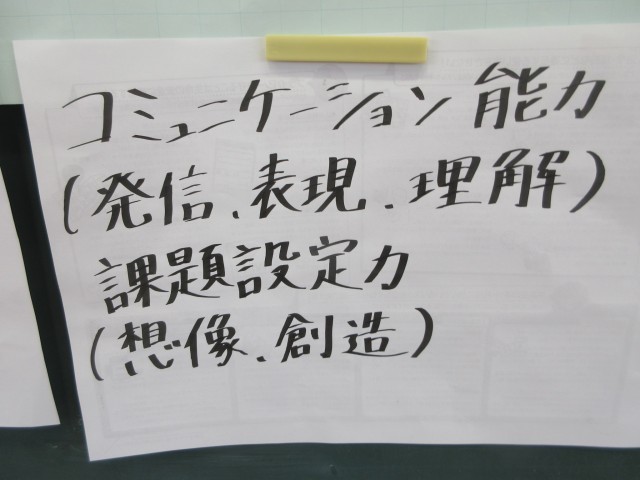 コミュニケーション能力
(発信、表現、理解)
課題設定力
(想像、創造)